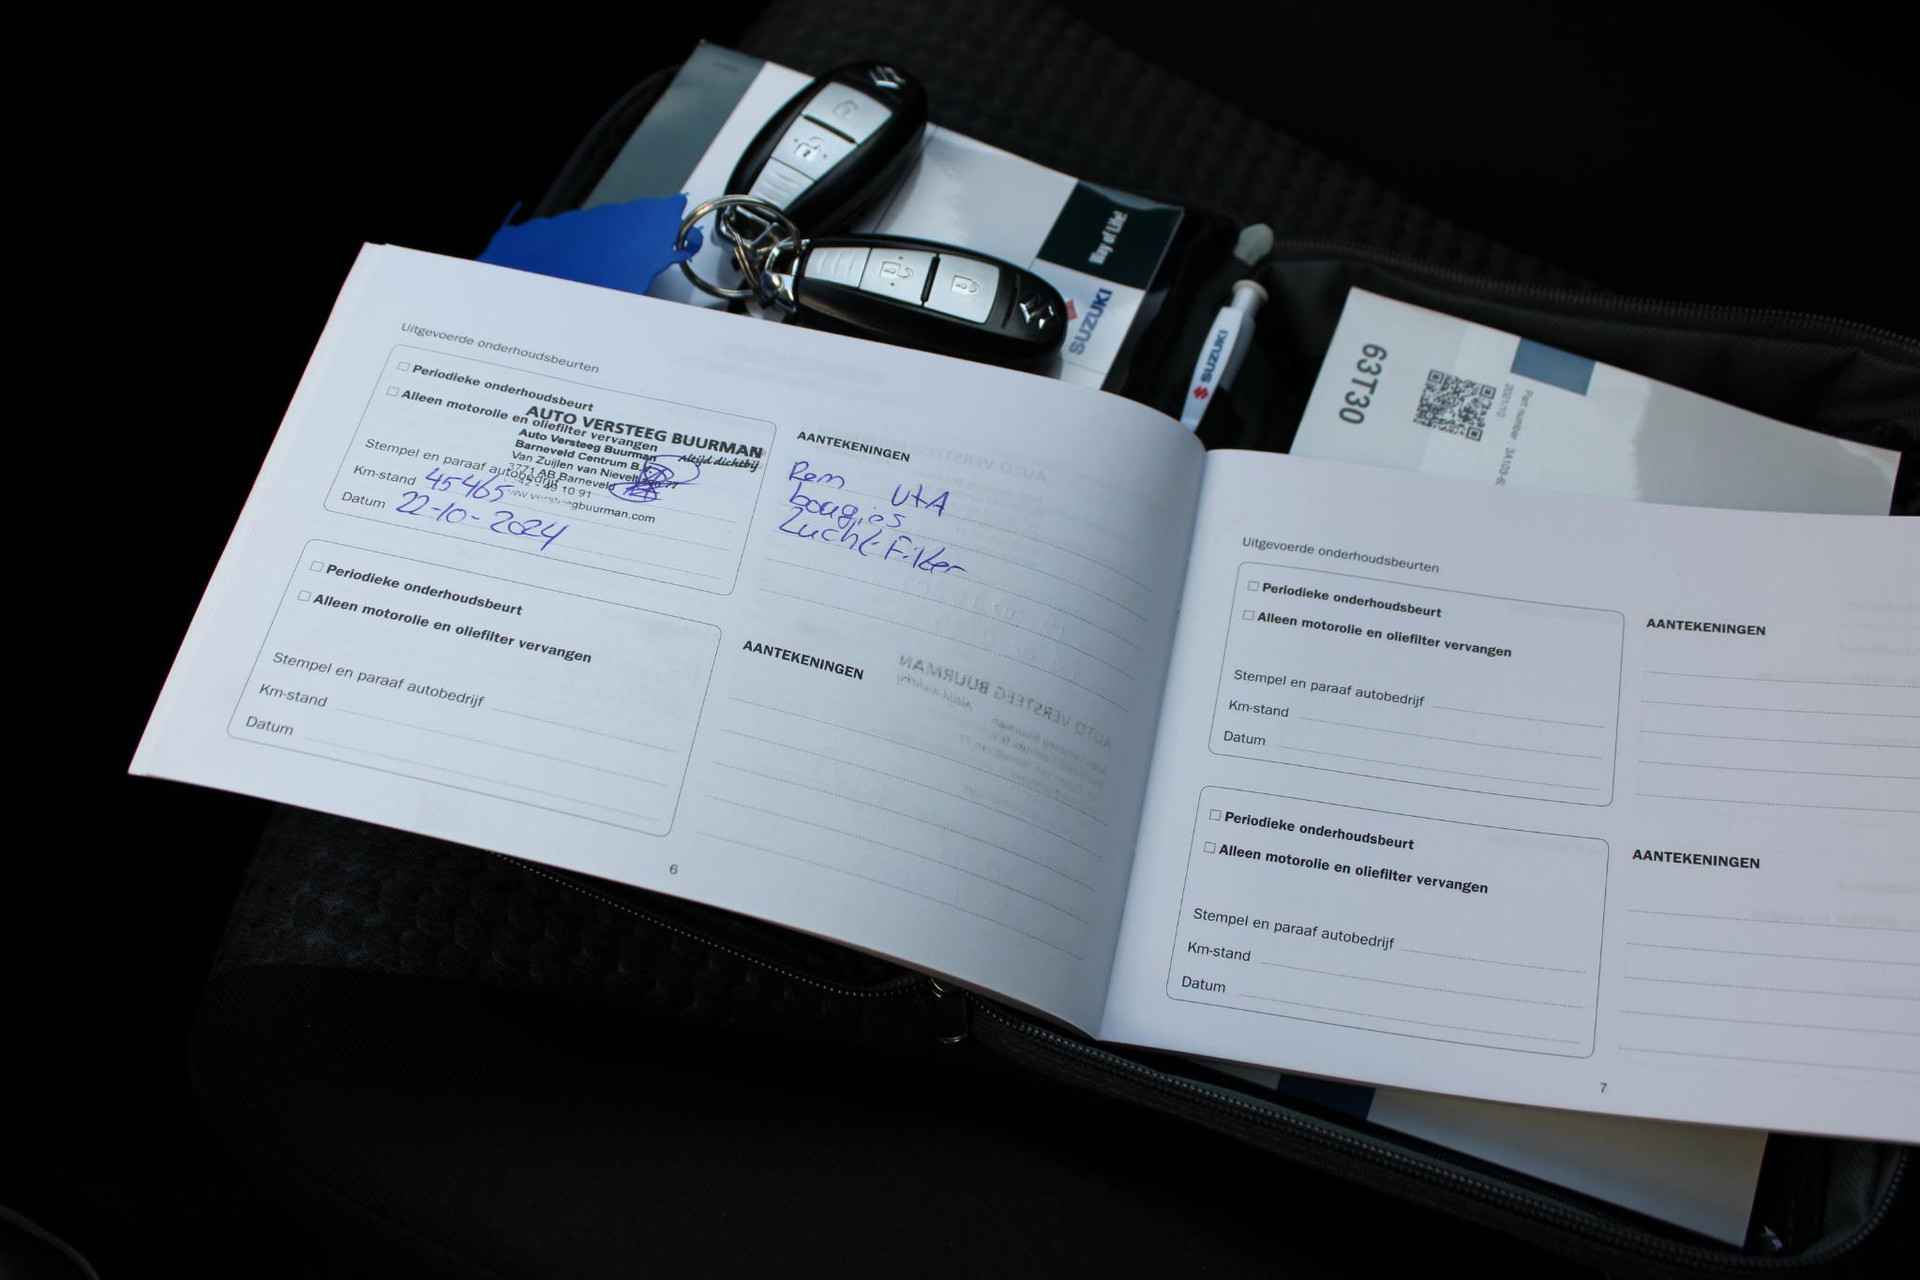 Way of Life!
SUZUKI
SUZUKI
63T30
2021/10
Uitgevoerde onderhoudsbeurten
Periodieke onderhoudsbeurt
Alleen motorolie en oliefilter vervangen
AUTO VERSTEEG BUURMAN
Altijd dichtbij
Auto Versteeg Buurman
Barneveld Centrum B.V.
Van Zuijlen van Nievelt
3771 AB Barneveld
10 91
buurman.com
Stempel en paraaf autobedrijf
Km-stand 45465
Datum 22-10-2024
AANTEKENINGEN
Rem
bougies
Luchtfilter
Periodieke onderhoudsbeurt
Alleen motorolie en oliefilter vervangen
Stempel en paraaf autobedrijf
Km-stand
Datum
AANTEKENINGEN
6
Uitgevoerde onderhoudsbeurten
Periodieke onderhoudsbeurt
Alleen motorolie en oliefilter vervangen
Stempel en paraaf autobedrijf
Km-stand
Datum
AANTEKENINGEN
Periodieke onderhoudsbeurt
Alleen motorolie en oliefilter vervangen
Stempel en paraaf autobedrijf
Km-stand
Datum
AANTEKENINGEN
7